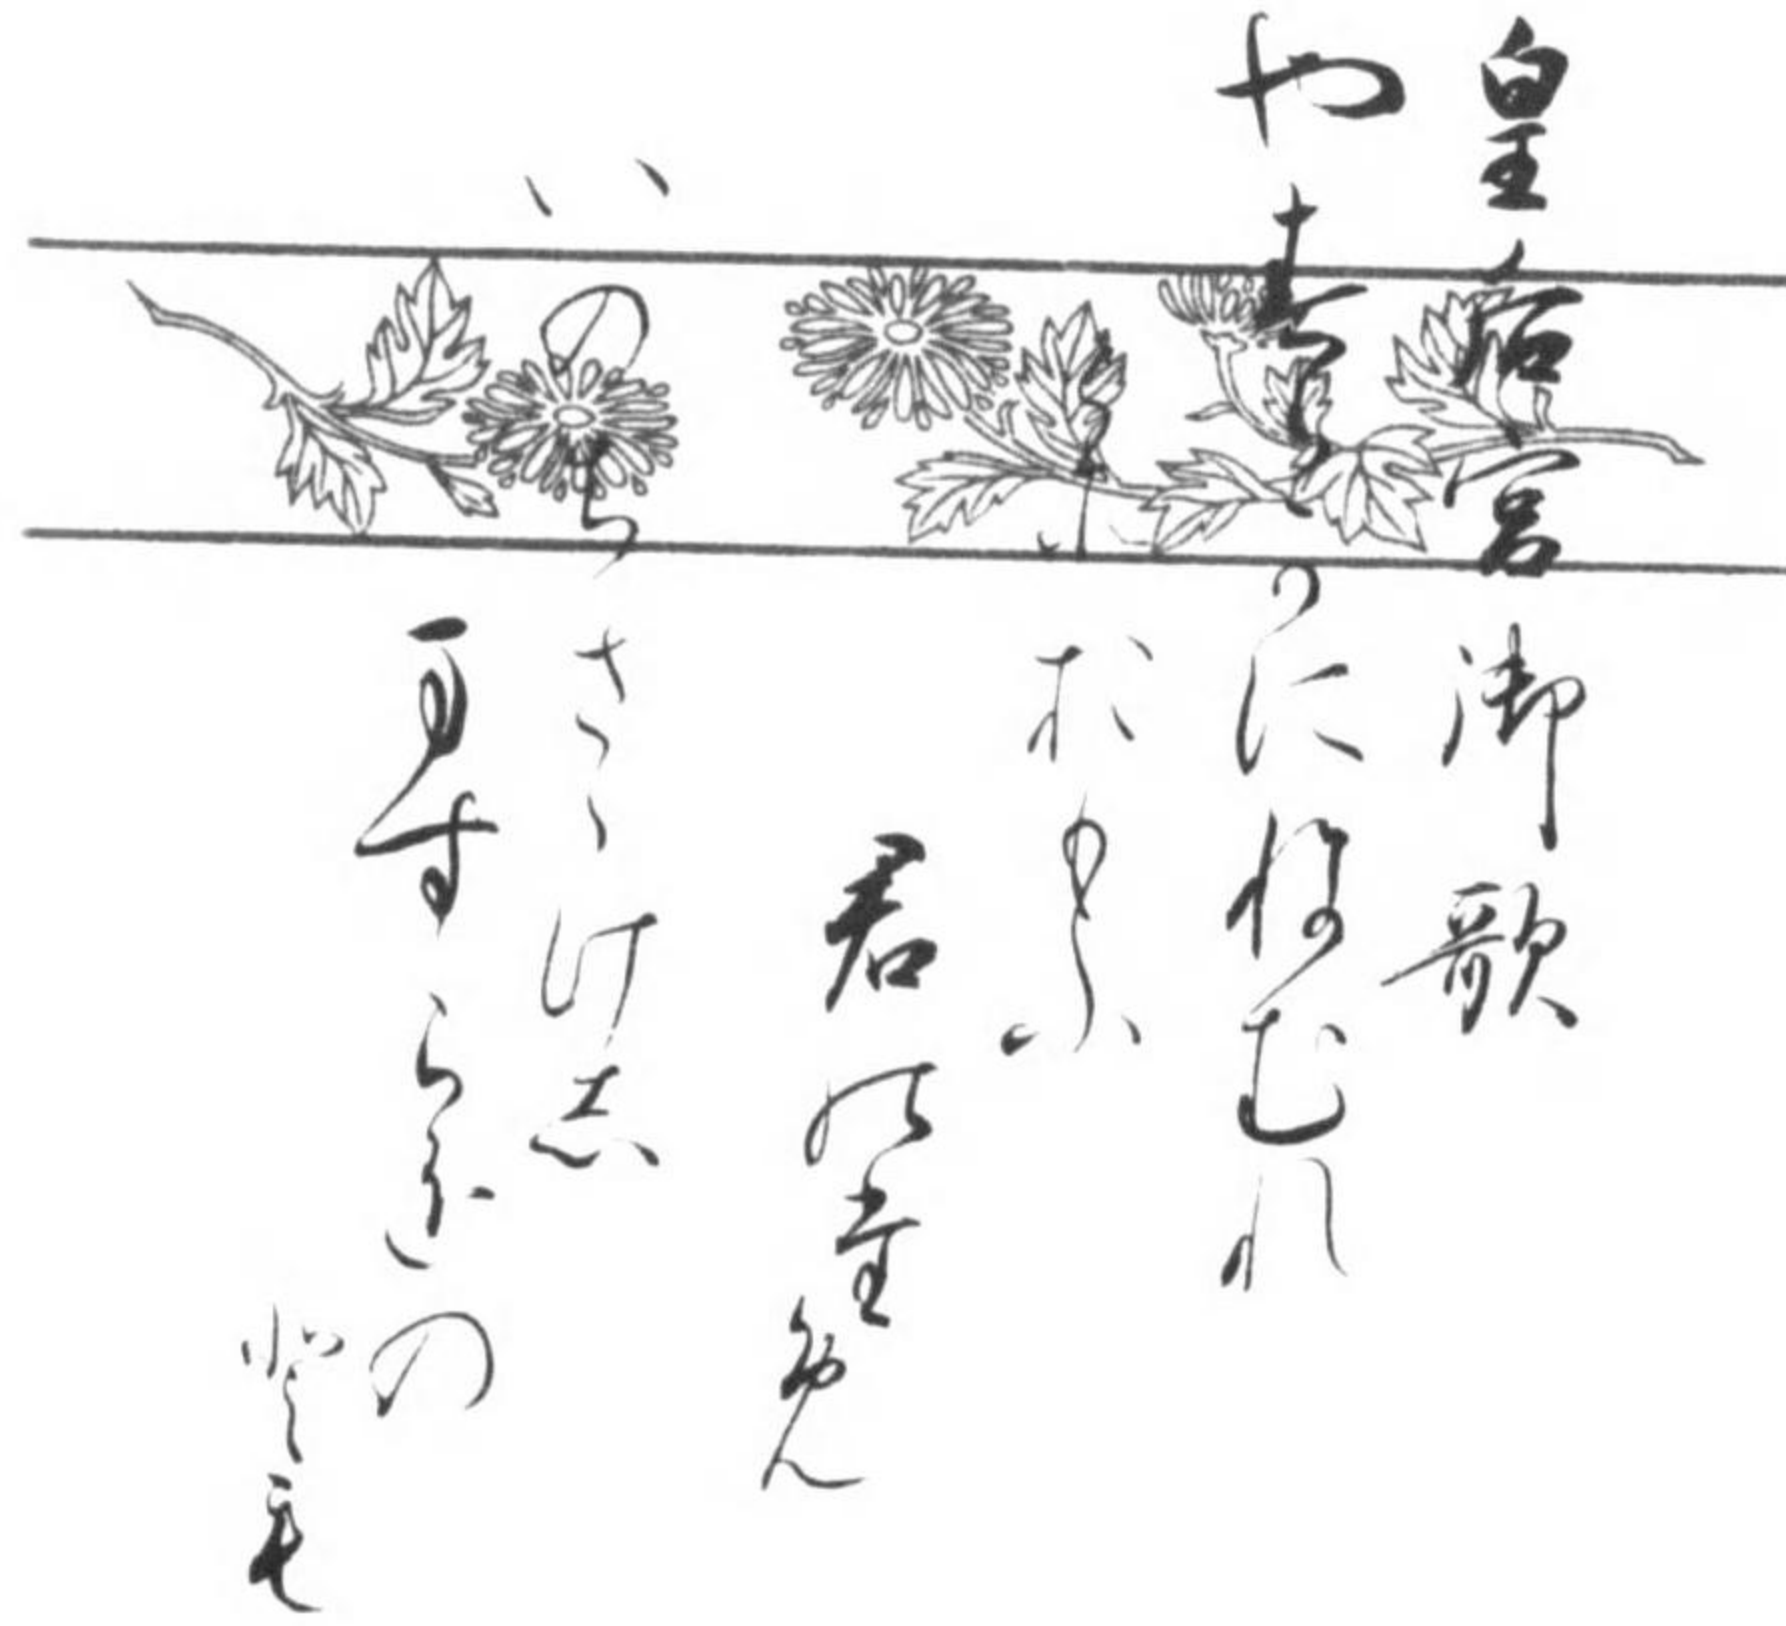 皇后宮御歌
やすらかにねむれ
とそおもふ
君のため
いのちさゝけし
ますらをの
とも